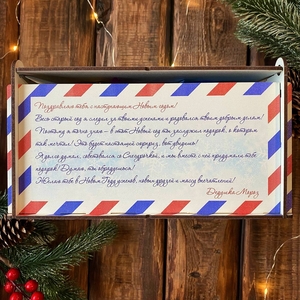 Поздравляю тебя с наступающим Новым годом!
Весь старый год я следил за твоими успехами и радовался твоим добрым делам!
Поэтому я точно знаю - в этот Новый год ты заслужил подарок, о котором
так мечтал! Это будет настоящий сюрприз, вот увидишь!
Я долго думал, советовался со Снегурочкой, и мы вместе с ней придумали тебе
подарок! Думаю, ты обрадуешься!
Желаю тебе в Новом Году успехов, новых друзей и массу впечатлений!
Дедушка Мороз